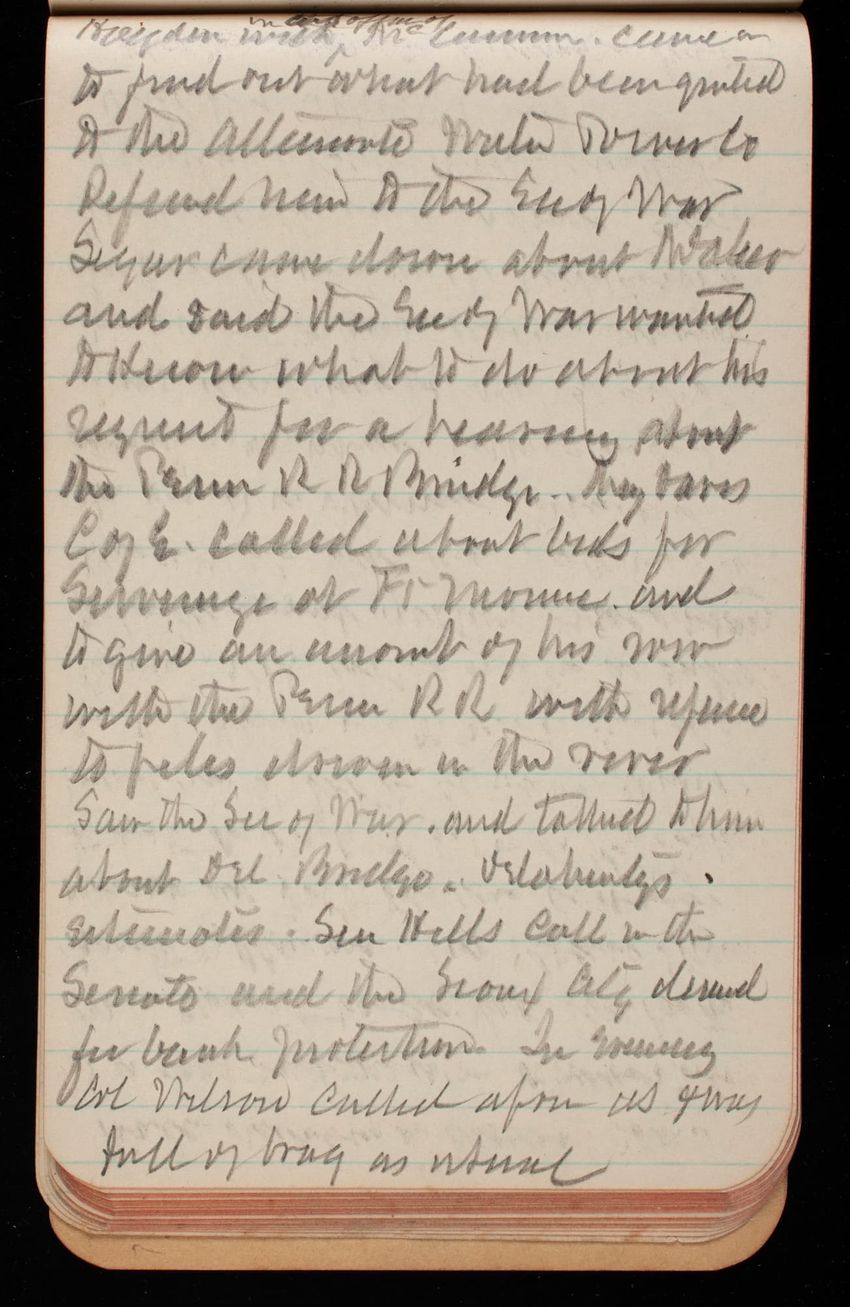 Hayden with, Mc came
to find out what had been granted
to the Alternate Water Power Co
Refered him to the Sec of War
Segur came down about
and said the Sec of War wanted
to Know what to do about his
request for a hearing about
the Penn R R Bridge. Davis
C of E. called about bids for
Sewerage at Ft Monroe. and
to give an account of his row
with the Penn R R with refence
to piles driven in the river
Saw the Sec of War. and talked to him
about Del Bridge.
Estimates. Sen Call in the
Senate and the Sioux City demand
for bank protection. In evening
Col Wilson called upon us & was
full of brag as usual